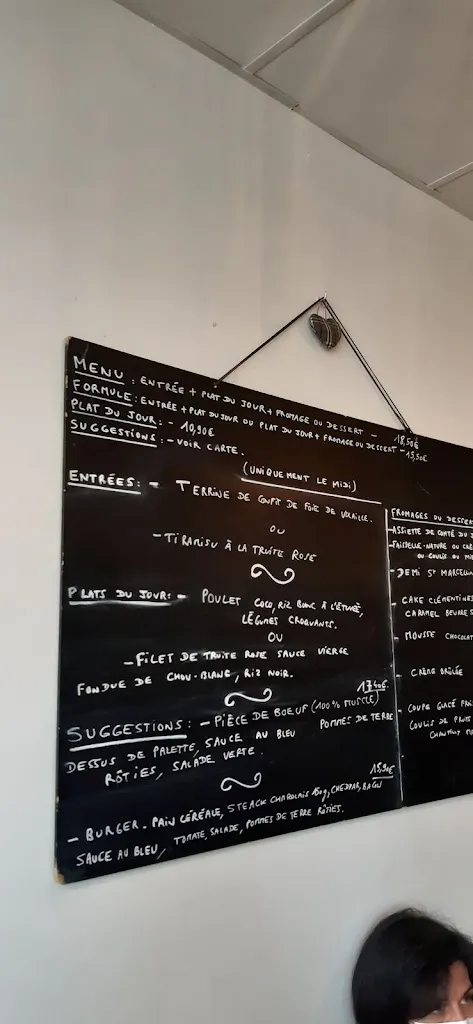 MENU : ENTRÉE + PLAT DU JOUR + FROMAGE OU DESSERT - 18,50€
FORMULE : ENTRÉE + PLAT DU JOUR OU PLAT DU JOUR + FROMAGE OU DESSERT - 15,50€
PLAT DU JOUR : - 10,90€
SUGGESTIONS : - VOIR CARTE.
(UNIQUEMENT LE MIDI)
ENTRÉES : - TERRINE DE CONFIT DE FOIE DE VOLAILLE.
OU
- TIRAMISU À LA TRUITE ROSE
PLATS DU JOUR : - POULET COCO, RIZ BLANC À L'ÉTUVÉ,
LÉGUMES CROQUANTS.
OU
- FILET DE TRUITE ROSE SAUCE VIERGE
FONDUE DE CHOU-BLANC, RIZ NOIR.
17,40€
SUGGESTIONS : - PIÈCE DE BOEUF (100% MUSCLE)
DESSUS DE PALETTE, SAUCE AU BLEU POMMES DE TERRE
RÔTIES, SALADE VERTE.
15,90€
- BURGER. PAIN CÉRÉALE, STEACK CHAROLAIS 150g, CHEDDAR, BACON
SAUCE AU BLEU, TOMATE, SALADE, POMMES DE TERRE RÔTIES.
FROMAGES OU DESSER
- ASSIETTE DE COMTÉ DU J
- FAISSELLE NATURE OU
OU COULIS OU MI
- DEMI ST MARCELLIN
- CAKE CLÉMENTINES
CARAMEL BEURRE S
- MOUSSE CHOCOLAT
- CRÈME BRÛLÉE
- COUPE GLACÉ
COULIS DE FRUIT
CHANTILLY